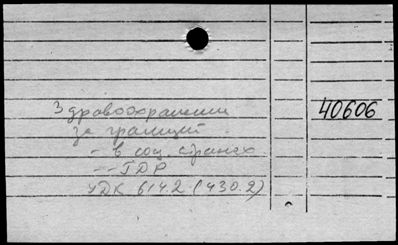 Здравоохранение
за границей.
- в соц. странах
-- ГДР
УДК 614.2 (430.2)
40606